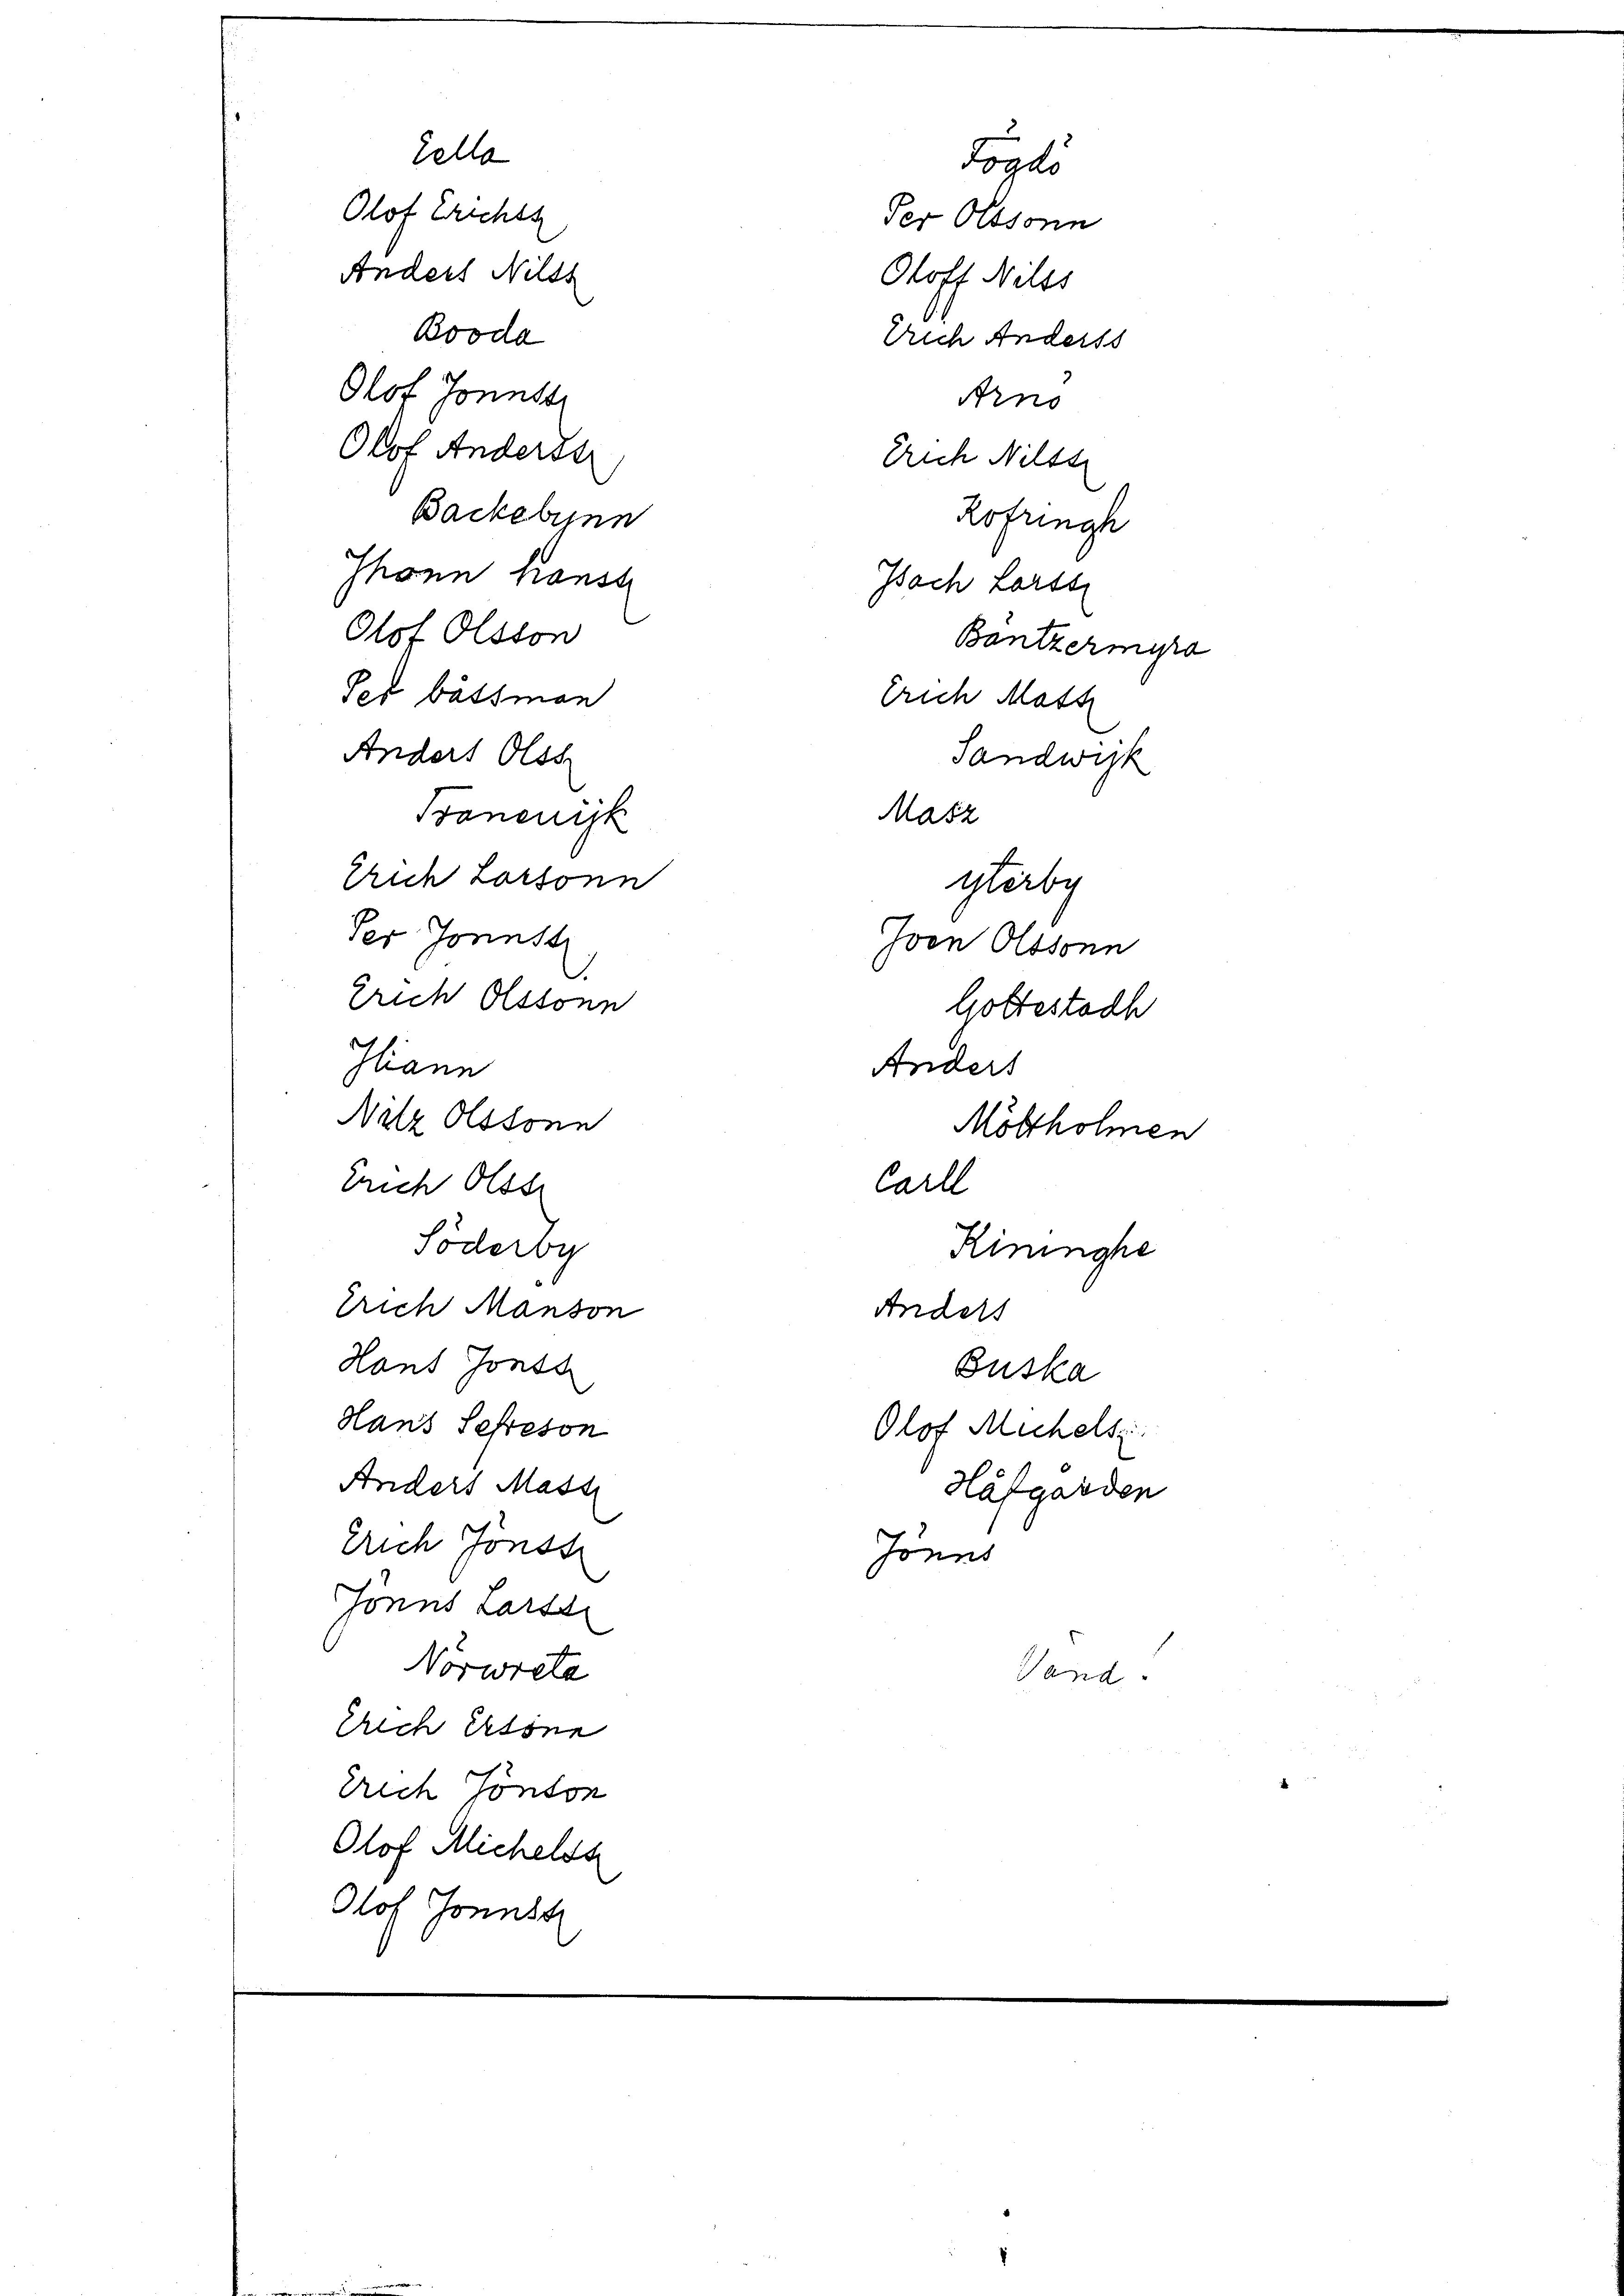 Eella
Olof Erichss
Anders Nilss
Booda
Olof Jonnss
Olof Anderss
Backebynn
Jhonn hanss
Olof Olsson
Per båssman
Anders Olss
Tranevijk
Erich Larsonn
Per Jonnss
Erich Olssonn
Jliann
Nilz Olssonn
Erich Olss
Söderby
Erich Månson
Hans Jonss
Hans Sefreson
Anders Mass
Erich Jönss
Jönns Larss
Nörwreta
Erich Ersonn
Erich Jönson
Olof Michelss
Olof Jonnss
Fögdö
Per Olssonn
Oloff Nilss
Erich Anderss
Arnö
Erich Nilss
Rofringh
Jsach Larss
Bäntzermyra
Erich Mass
Sandwijk
Masz
yterby
Joen Olssonn
Gottestadh
Anders
Möltholmen
Carll
Kininghe
Anders
Buska
Olof Michels
Håfgården
Jönns
Vänd!